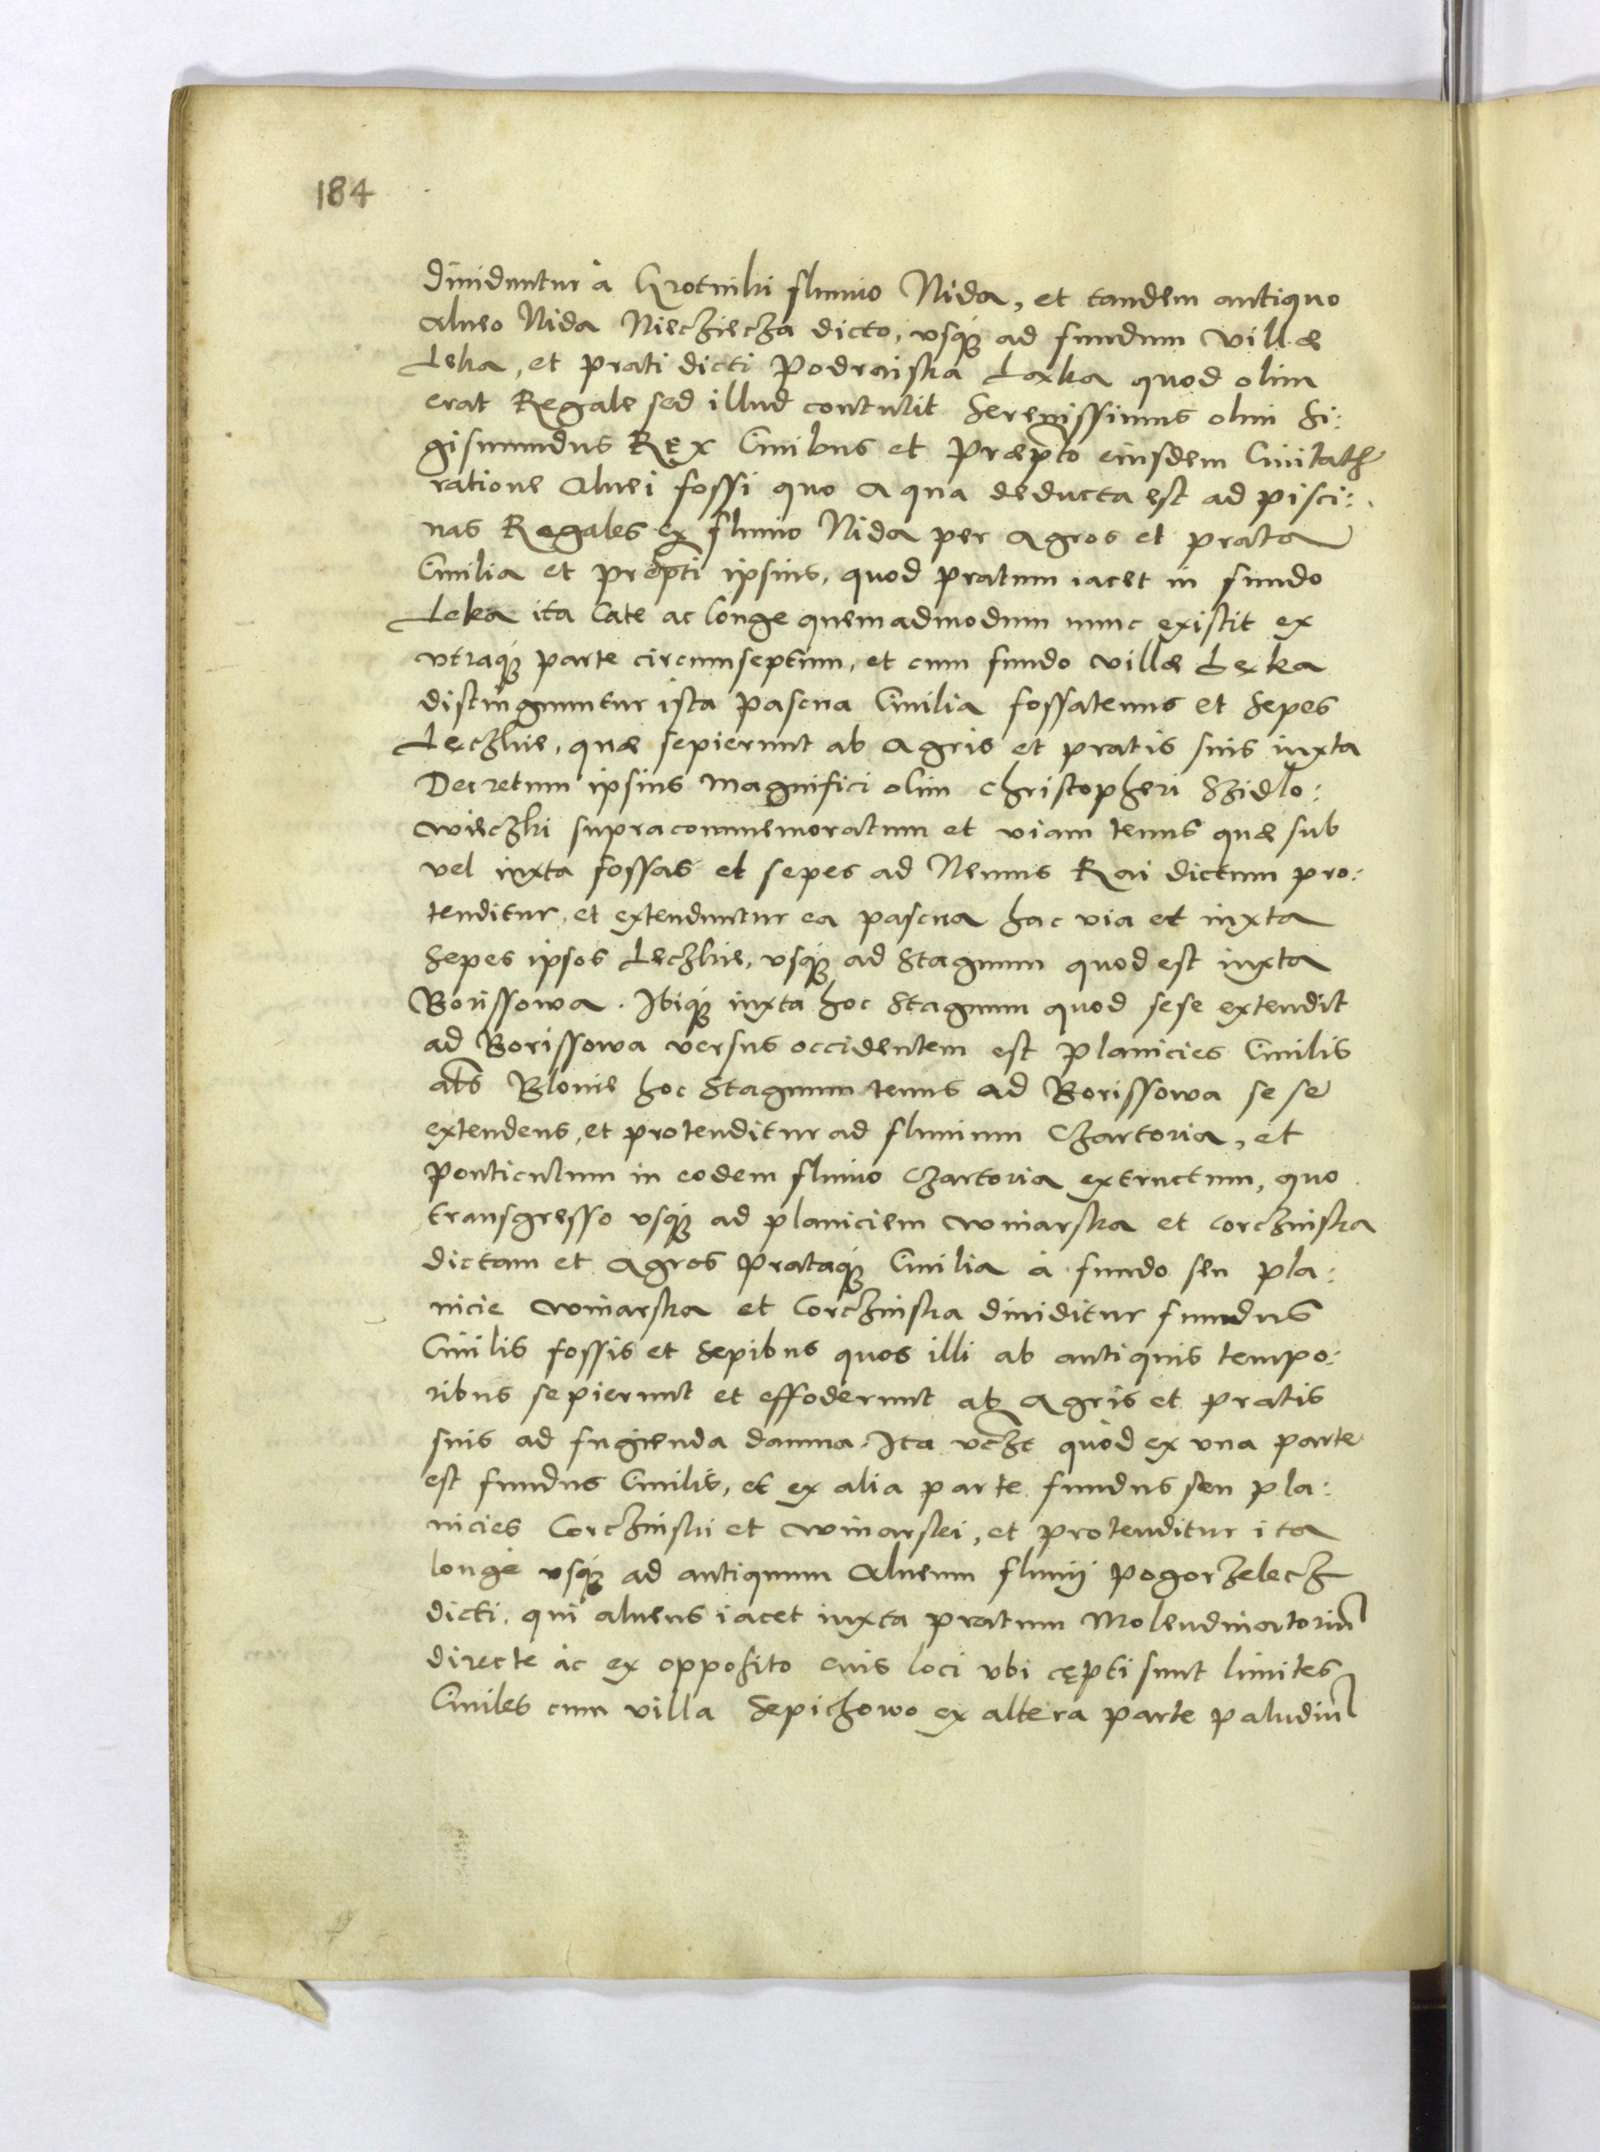 184
diuiduntur à Grotniki fluuio Nida, et tandem antiquo
alueo Nida Niecziecza dicto, vsq; ad fundum villæ
Leka, et prati dicti Podraiska Laxka quod olim
erat Regale sed illud contulit Serenissimus olim Si:
gismundus Rex Ciuibus et Præpto eiusdem Ciuitatis
ratione Aluei fossi quo Aqua deducta est ad pisci:
nas Regales ex fluuio Nida per Agros et prata
Ciuilia et prepti ipsius, quod pratum iacet in fundo
Leka ita late ac longe quemadmodum nunc existit ex
vtraq; parte circumseptum, et cum fundo villæ Leka
distinguuntur ista pascua Ciuilia fossatenus et sepes
Leczkie, quæ sepierunt ab Agris et pratis suis iuxta
Decretum ipsius Magnifici olim Christopheri Szidlo:
wieczki supracommemoratum et viam tenus quæ sub
vel iuxta fossas et sepes ad Nemus Rai dictum pro:
tenditur, et extenduntur ea pascua hac via et iuxta
sepes ipsos Leczkie, vsq; ad Stagnum quod est iuxta
Borissowa. Ibiq; iuxta hoc Stagnum quod sese extendit
ad Borissowa versus occidentem est planicies Ciuilis
als Blonie hoc Stagnum tenus ad Borissowa se se
extendens, et protenditur ad fluuium Czartoria, et
ponticulum in eodem fluuio Czartoria extructum, quo
transgresso vsq; ad planiciem winarska et Corczinska
dictam et Agros Prataq; Ciuilia à fundo seu pla:
nicie winarska et Corczinska diuiditur fundus
Ciuilis fossis et sepibus quos illi ab antiquis tempo:
ribus sepierunt et effoderunt ab Agris et pratis
suis ad fugienda damna. Ita quòd ex vna parte
est fundus Ciuilis, et ex alia parte fundus seu pla:
nicies Corczinski et winarski, et protenditur ita
longè vsq; ad antiquum Alueum fluuij Pogorzelecz
dicti, qui alueus iacet iuxta pratum Molendinatorium
directe ac ex opposito eius loci vbi cępti sunt limites
Ciuiles cum villa Sepichowo ex altera parte paludium